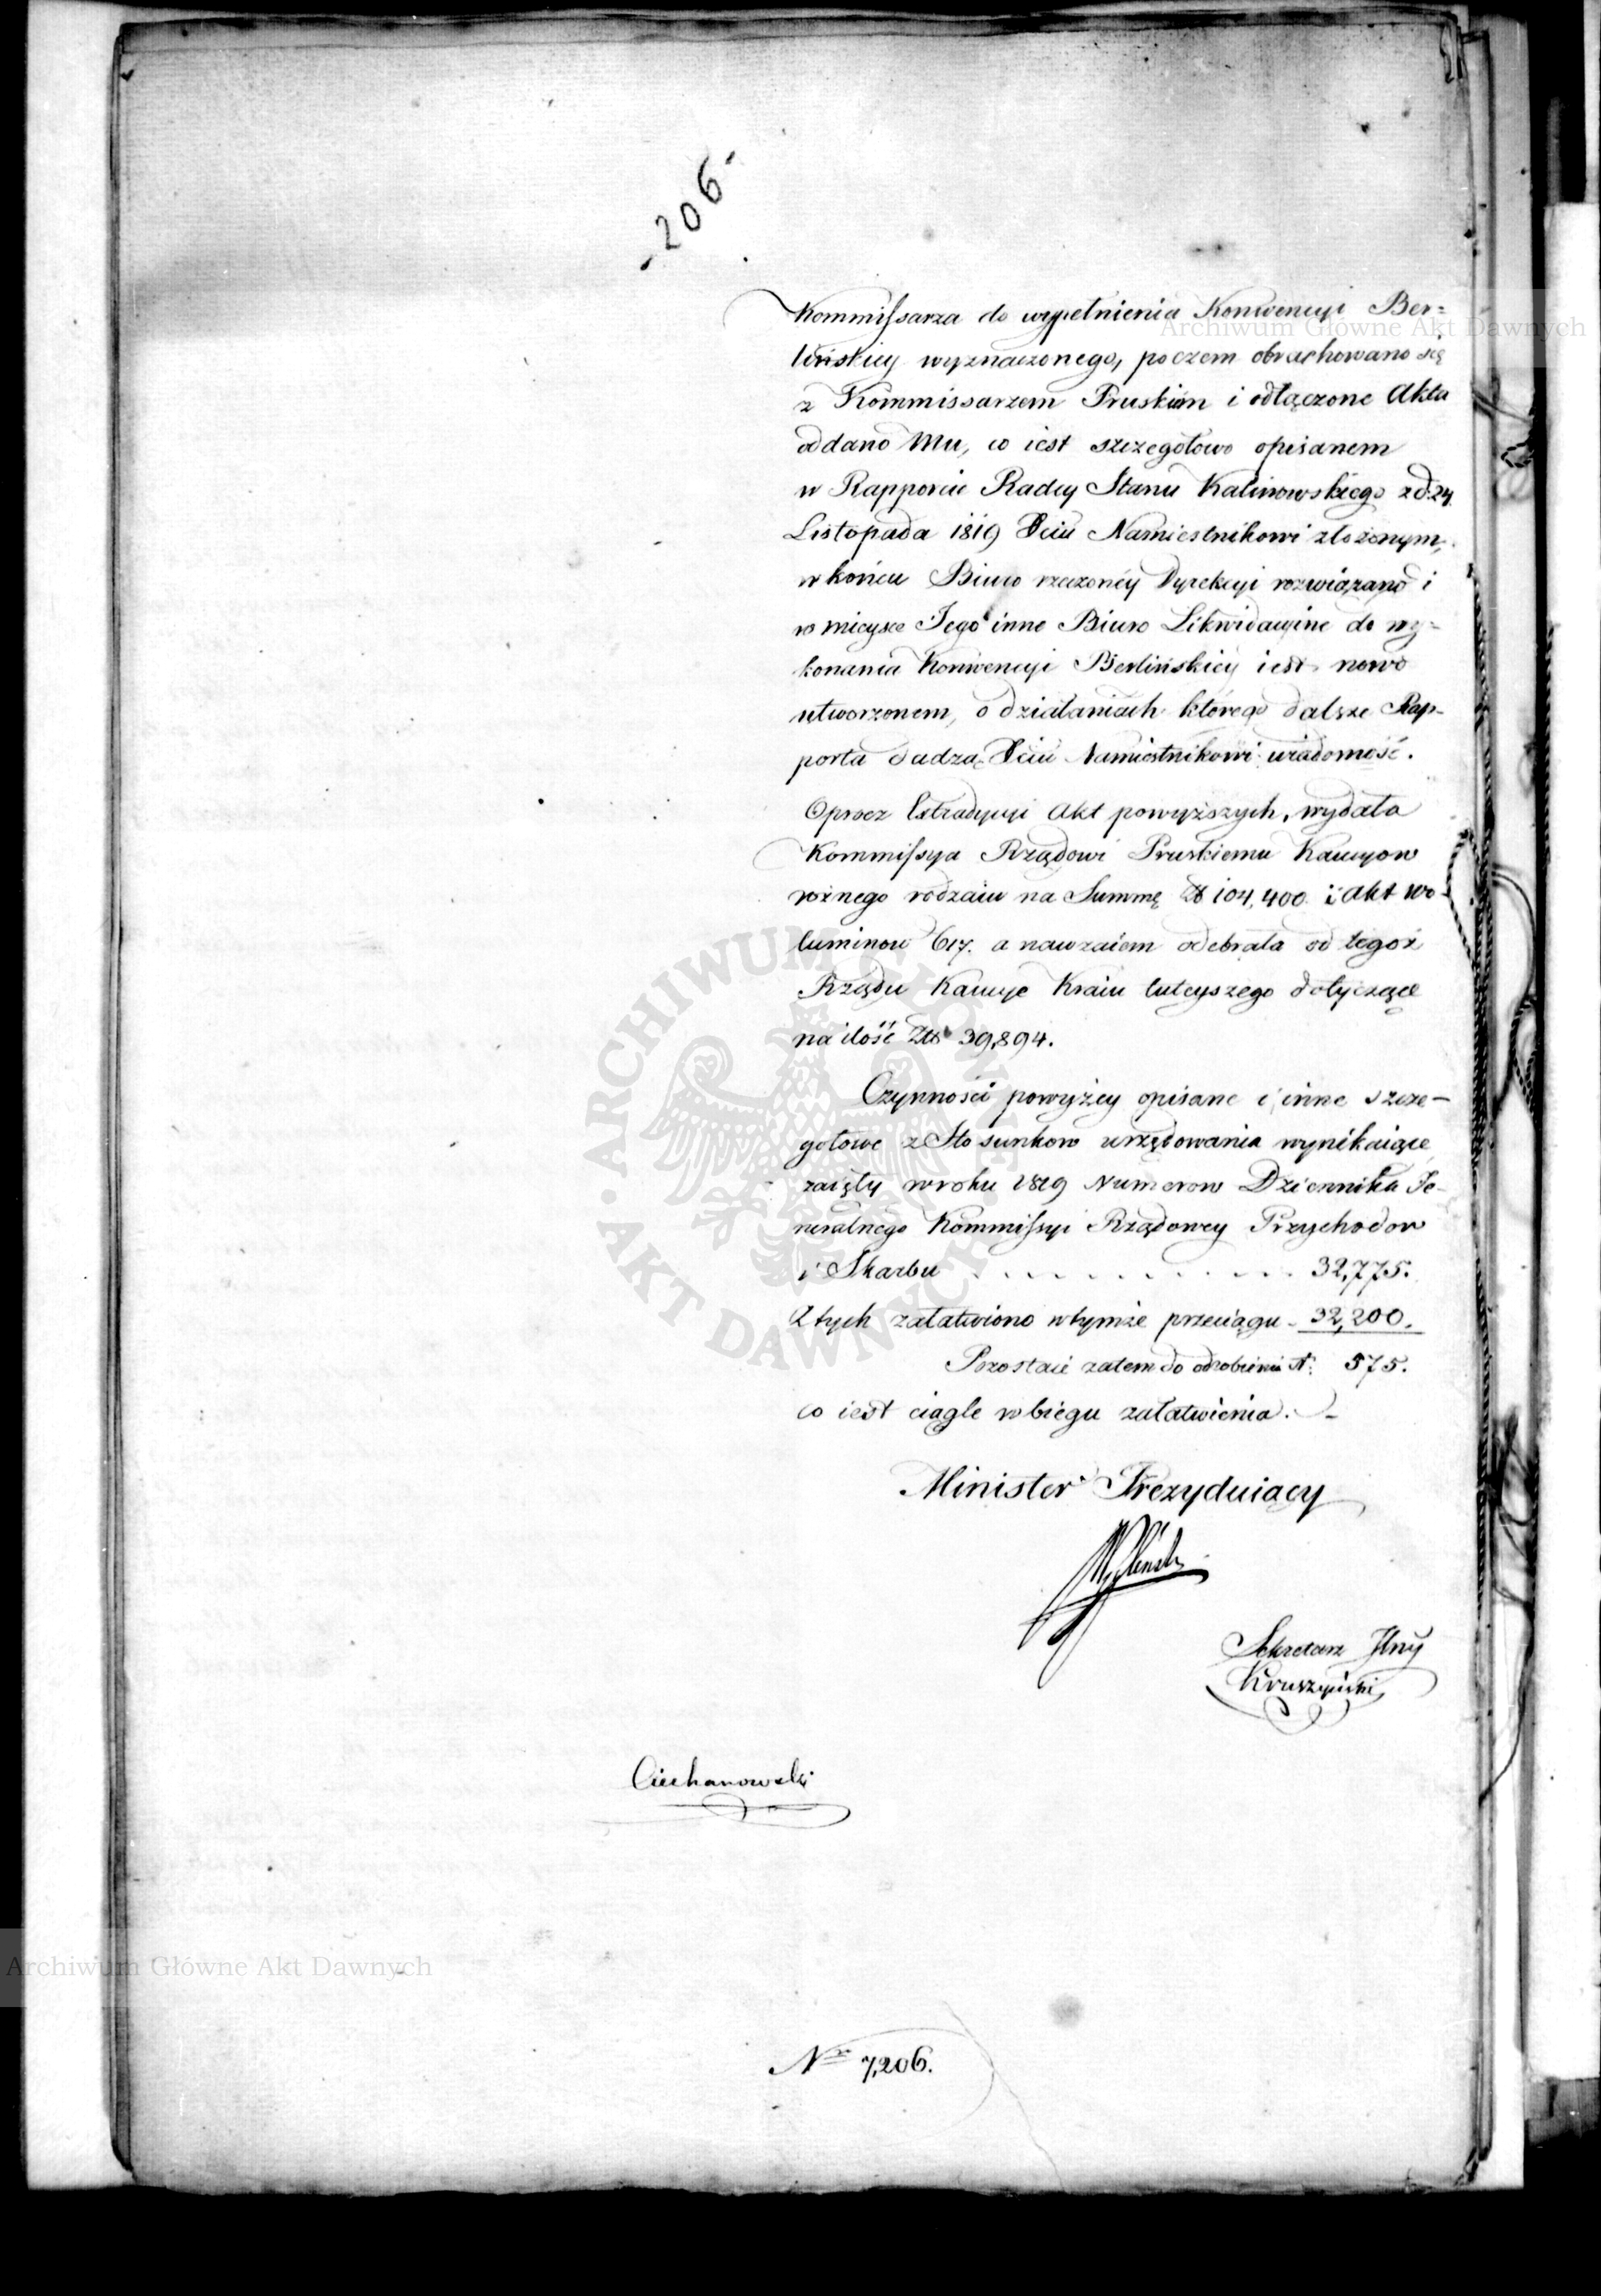 206.
Kommissarza do wypełnienia Konwencyi Ber=
lińskiey wyznaczonego, poczem obrachowano się
z Kommissarzem Pruskim i odłączone Akta
oddano Mu, co iest szczegołowo opisanem
w Rapporcie Radcy Stanu Kalinowskiego z d. 24
Listopada 1819 Xciu Namiestnikowi złożonym,
w końcu Biuro rzeczonéy Dyrekcyi rozwiązano i
w mieysce Jego inne Biuro Likwidacyine do wy=
konania Konwencyi Berlińskiey iest nowo
utworzonem, o działaniach którego dalsze Rap-
porta dadzą Xciu Namiestnikowi wiadomość.
Oprocz Extradycyi Akt powyższych, wydała
Kommissya Rządowi Pruskiemu Kaucyow
rożnego rodzaiu na Summę Zł 104,400 i Akt wo-
luminow 617. a nawzaiem odebrała od tegoż
Rządu Kaucye Kraiu tuteyszego dotyczące
na ilość Złł 39,894.
Czynności powyżey opisane i inne szcze-
gołowe z Stosunkow urzędowania wynikaiące
zaięły w roku 1819 Numerow Dziennika Je-
neralnego Kommissyi Rządowey Przychodow
i Skarbu . . . . . . . . . . . . 32,775.
Z tych załatwiono w tymże przeciągu - 32,200.
Pozostaie zatem do odrobienia N: 575.
co iest ciągle w biegu załatwienia.
Minister Prezyduiący
Sekretarz Jlny
Kruszyński
Ciechanowski
Nr 7,206.
Archiwum Główne Akt Dawnych
Archiwum Główne Akt Dawnych
ARCHIWUM GŁÓWNE AKT DAWNYCH